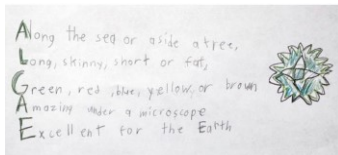 Along the sea or aside a tree,
Long, skinny, short or fat,
Green, red, blue, yellow, or brown
Amazing under a microscope
Excellent for the Earth